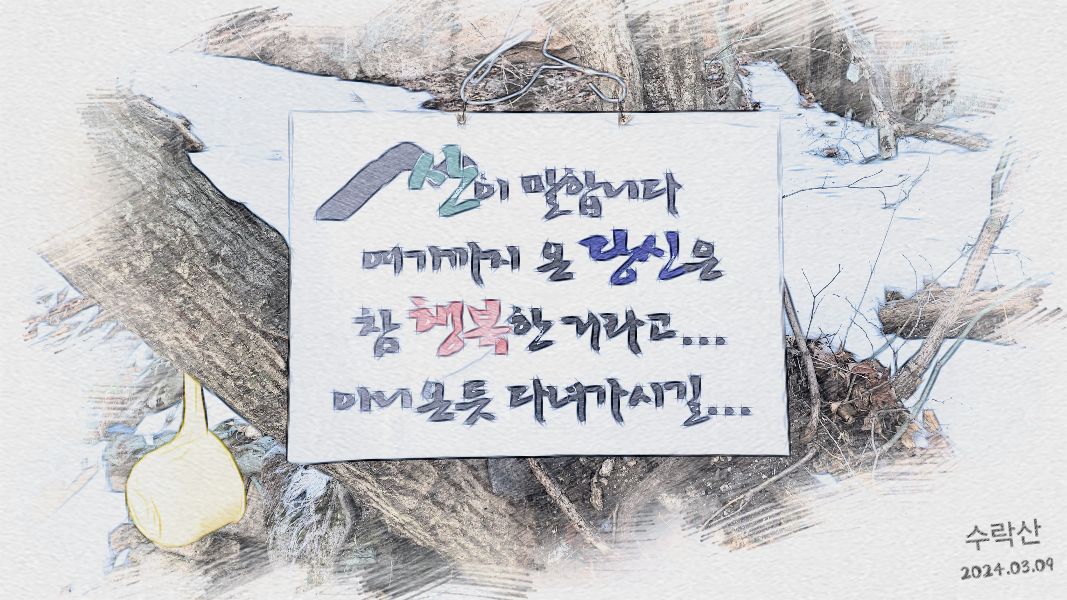 산이 말합니다
여기까지 온 당신은
참 행복한 거라고...
아니온듯 다녀가시길...
수락산
2024.03.09